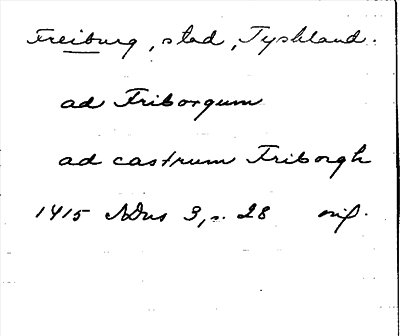 Freiburg, stad, Tyskland.
ad Friborgum
ad castrum Friborgh
1415 3, s. 28